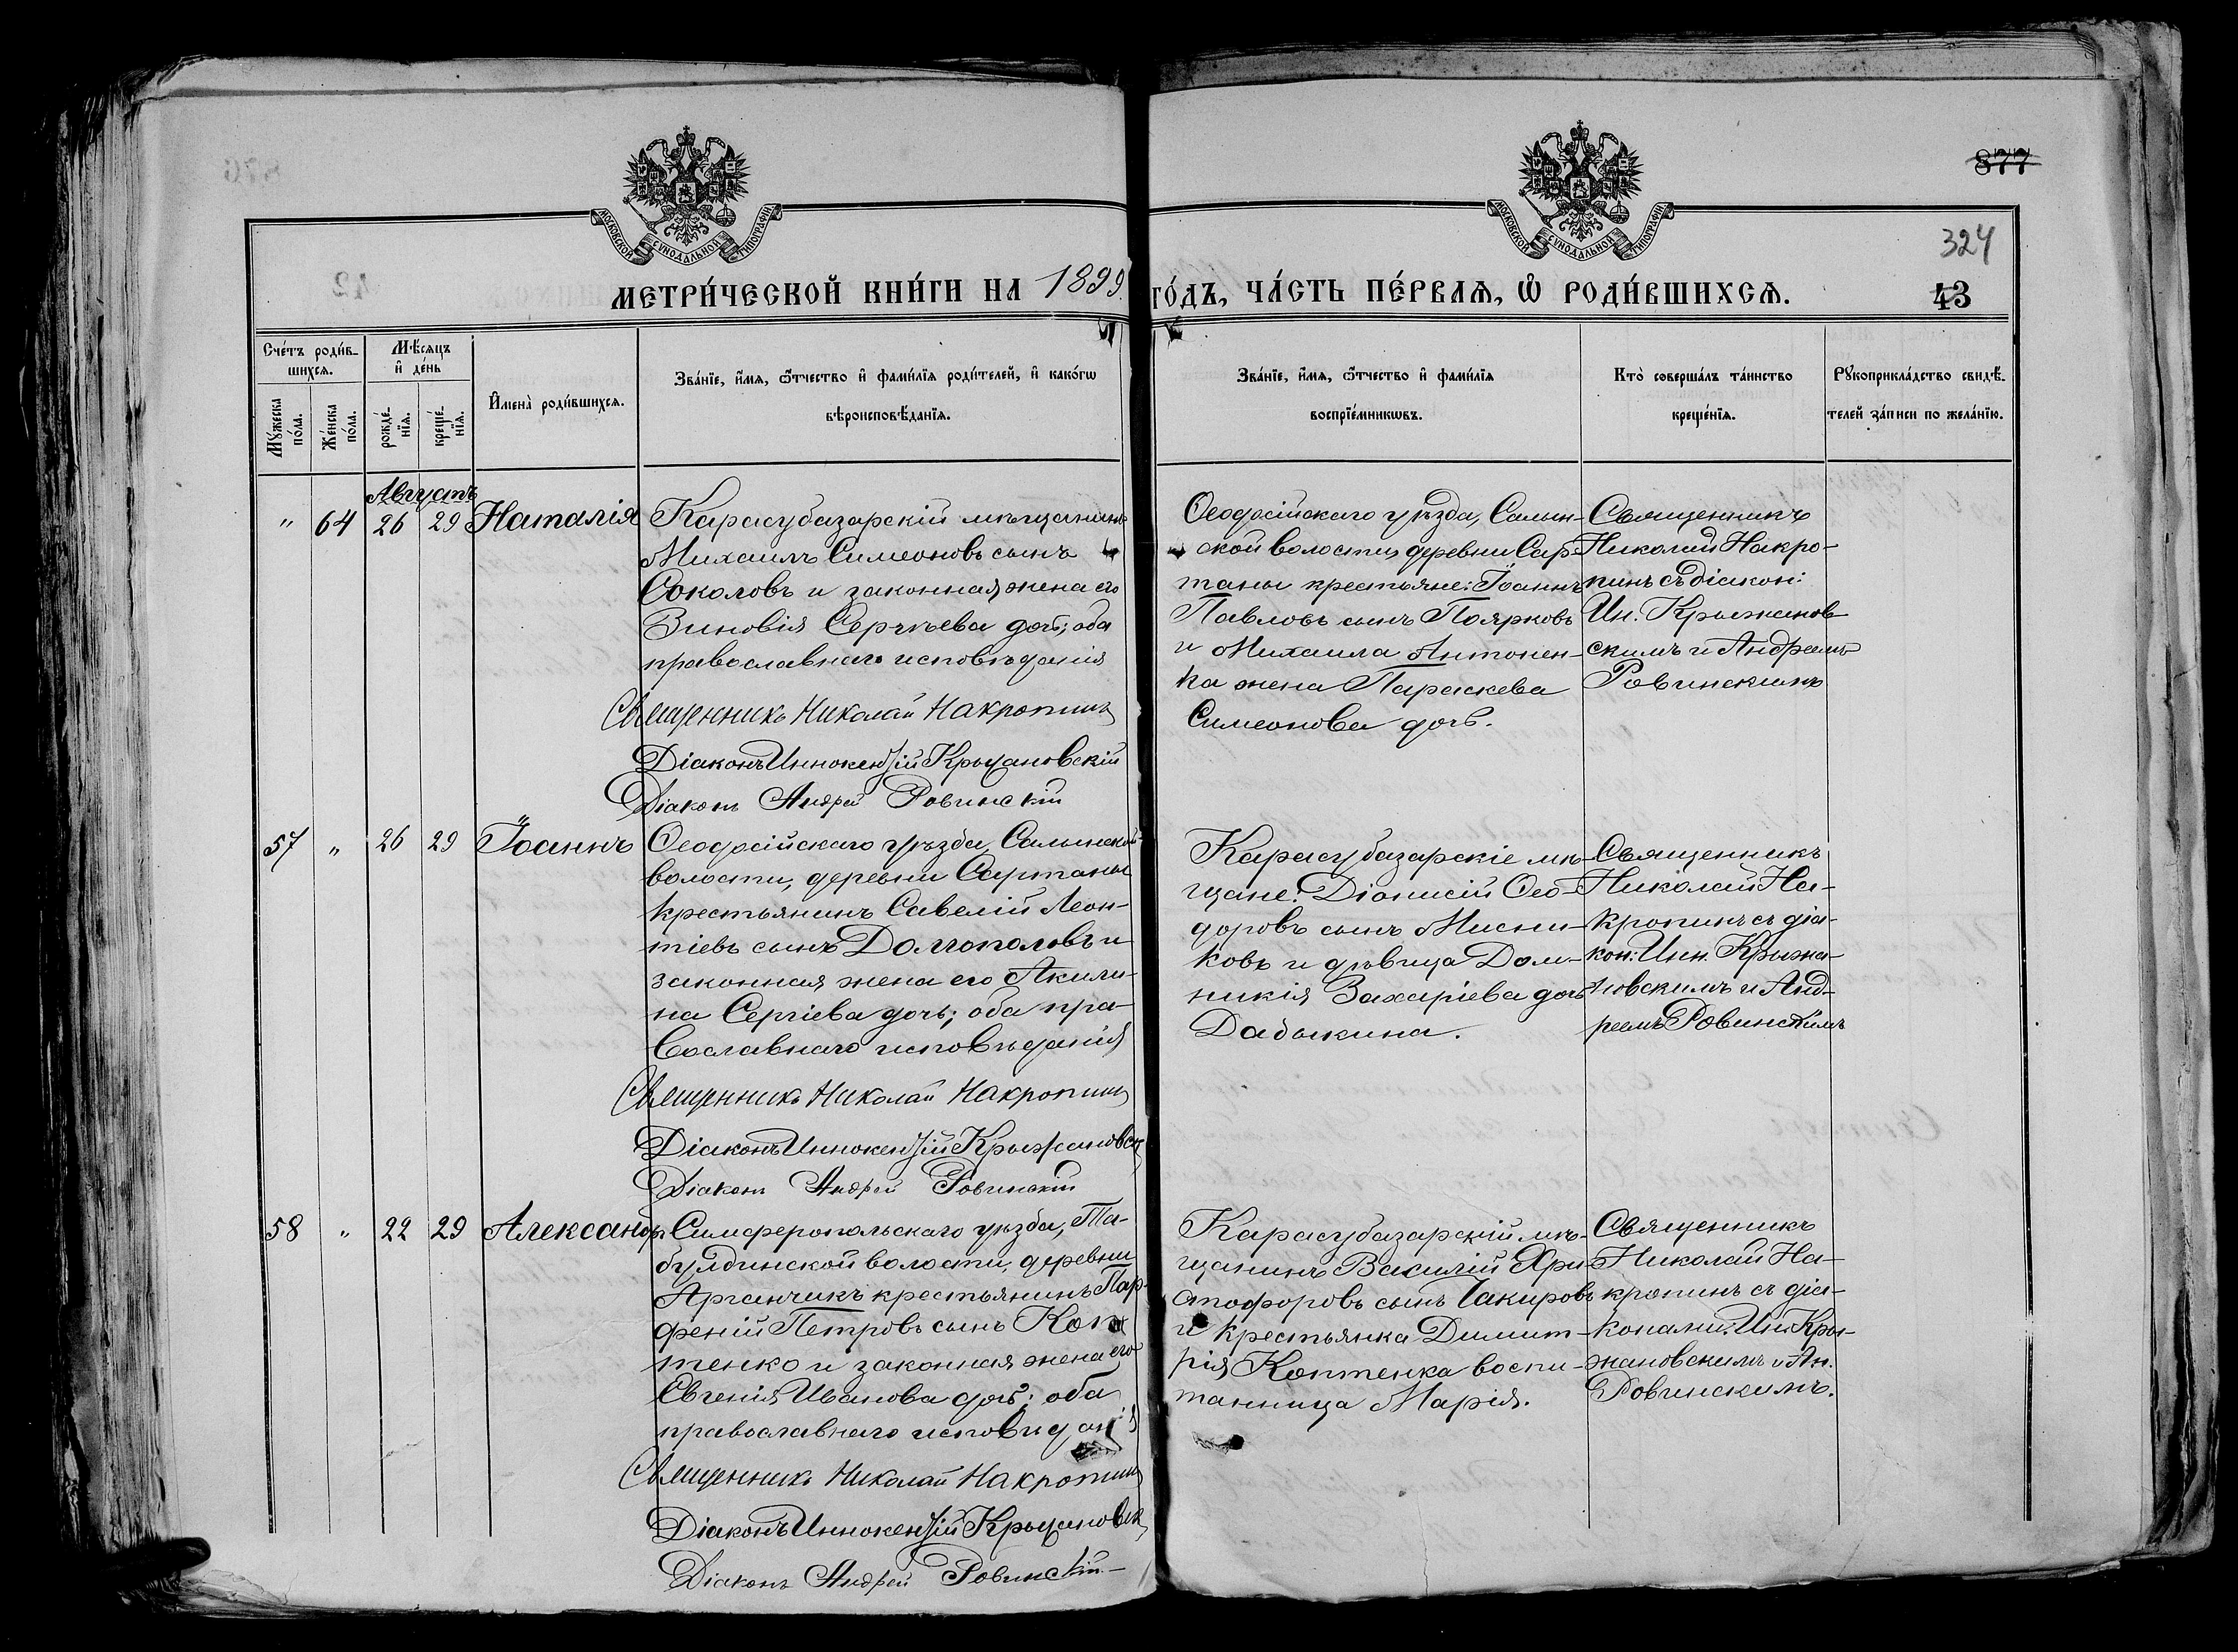 877
324
43
МОСКОВСКОЙ СѴНОДАЛЬНОЙ ТИПОГРАФІИ
МОСКОВСКОЙ СѴНОДАЛЬНОЙ ТИПОГРАФІИ
МЕТРИ́ЧЕСКОЙ КНИ́ГИ НА 1899 ГО́ДЪ, ЧА́СТЬ ПЕ́РВАѦ, Ѽ РОДИ́ВШИХСѦ.
Сче́тъ роди́в-
шихсѧ.
Мꙋ́жеска по́ла.
Же́нска по́ла.
Мѣ́сѧцъ и҆ де́нь
рожде́-нїѧ.
креще́-нїѧ.
И҆мена̀ роди́вшихсѧ.
Зва́нїе, и҆́мѧ, ѻ҆́тчество и҆ фами́лїѧ роди́телей, и҆ како́гѡ
вѣроисповѣ́данїѧ.
Зва́нїе, и҆́мѧ, ѻ҆́тчество и҆ фами́лїѧ
воспрїе́мникѡвъ.
Кто̀ соверша́лъ та́инство
креще́нїѧ.
Рꙋкоприкла́дство свидѣ́-
телей за́писи по жела́нїю.
Августъ
" 64 26 29 Наталія
Карасубазарскій мѣщанинъ
Михаилъ Симеоновъ сынъ
Соколовъ и законная жена его
Зиновія Сергѣева дочь; оба
православнаго исповѣданія
Священникъ Николай Накропинъ
Діаконъ Иннокентій Крыжановскій
Діаконъ Андрей Ровинскій
Ѳеодосійскаго уѣзда, Салын-
ской волости, деревни Сар-
таны крестьяне: Іоаннъ
Павловъ сынъ Поярковъ
и Михаила Антонен-
ка жена Параскева
Симеонова дочь.
Священникъ
Николай Накро-
пинъ съ діакон:
Ин. Крыжанов-
скимъ и Андреемъ
Ровинскимъ
57 " 26 29 Іоаннъ
Ѳеодосійскаго уѣзда, Салынской
волости, деревни Сартаны
крестьянинъ Савелій Леон-
тіевъ сынъ Долгополовъ и
законная жена его Акили-
на Сергіева дочь; оба пра-
вославнаго исповѣданія
Священникъ Николай Накропинъ
Діаконъ Иннокентій Крыжановск
Діаконъ Андрей Ровинскій
Карасубазарскіе мѣ-
щане: Діонисій Ѳео-
доровъ сынъ Мисни-
ковъ и дѣвица Дом-
никія Захаріева дочь
Дабыкина.
Священникъ
Николай На-
кропинъ съ діа-
кон: Инн. Крыжа-
новскимъ и Анд-
реемъ Ровинскимъ
58 " 22 29 Александръ
Симферопольскаго уѣзда, Та-
булдинской волости, деревни
Арганчикъ крестьянинъ Пар-
феній Петровъ сынъ Коп-
тенко и законная жена его
Евгенія Иванова дочь; оба
православнаго исповѣданія
Священникъ Николай Накропинъ
Діаконъ Иннокентій Крыжановск
Діаконъ Андрей Ровинскій
Карасубазарскій мѣ-
щанинъ Василій Хри-
стофоровъ сынъ Чакировъ
и крестьянка Димит-
рія Коптенка воспи-
танница Марія.
Священникъ
Николай На-
кропинъ съ діа-
конами: Ин. Кры-
жановскимъ и Ан.
Ровинскимъ.